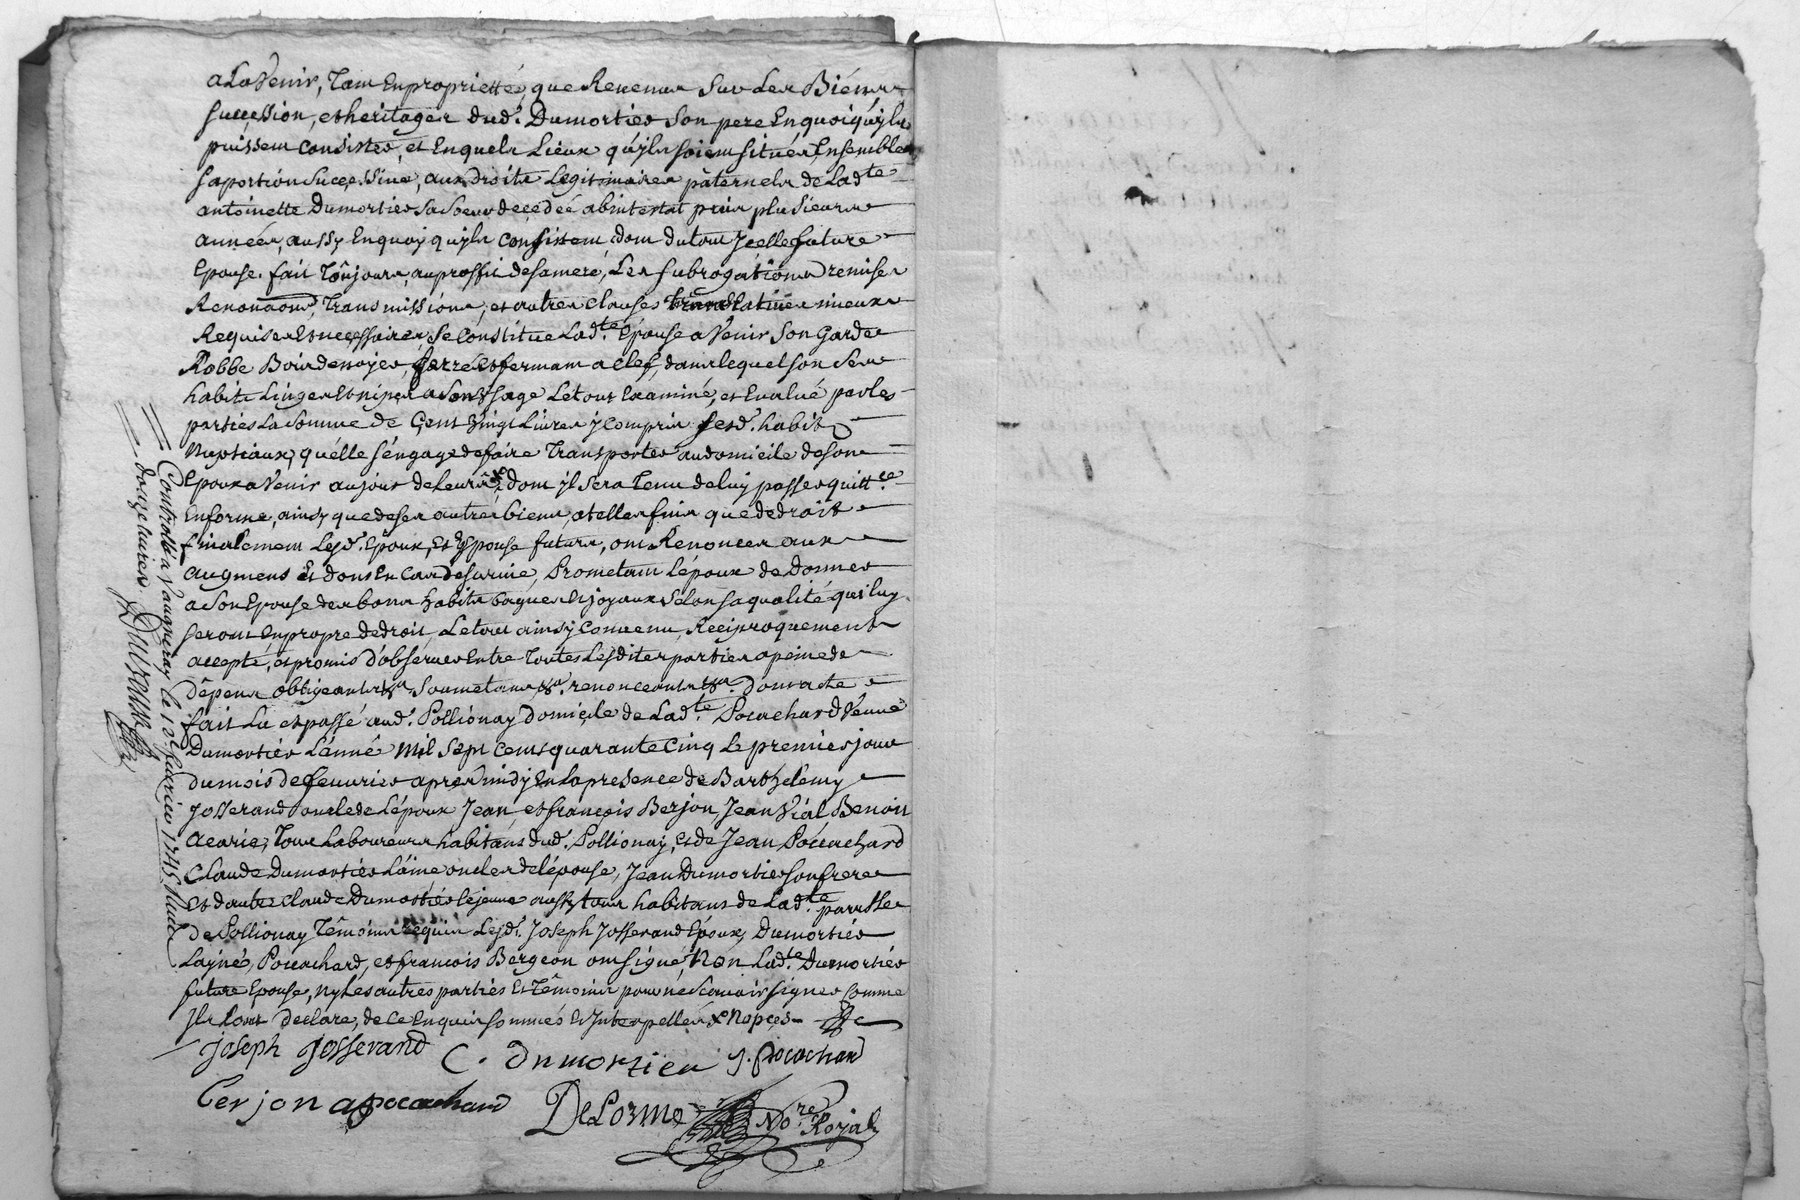 a La Venir, Tant En propriettés, que Revenus Sur Les Biéns
succession, et heritages dud.t Dumortier Son pere En quoi qu'yls
puissent Consister, et En quels Lieux qu'yls soient situés, Ensemble
sa portion Successive, aux droits Legitimaires pâternels de Lad.te
antoinette Dumortier sa Soeur decedeé abintestat puis plusieurs
années, aussy En quoy qu'yls Consistent dont du tout Jcelle future
Epouse. fait Toûjours, au proffit de sa mere, Les subrogâtions remises
Renonaons, Transmissions, et autres clauses translatives mieux
Requises Et necessaires, se Constitue Lad.te Epouse a Venir Son Garde
Robbe Bois de noyer, ferré Et fermant a Clef, dans lequel son Ses
habits Linges Et nipes a son Usage Le tout Examiné, et Evalué par les
parties La Somme de Cent Vingt Livres y Compris sesd.t habits
Nuptiaux, qu'élle s'éngage de faire Transporter au domicile de son
Epoux a Venir au jour de Leurs x dont yl sera Tenu de luy passer quitt.ce
En forme, ainsy que de ses autres biens, a telles fins que de droit
finalement Lesd.t Epoux, Et Epouse futurs, ont Renoncés aux
augmens Et dons En Cas de survie, Prometant L'époux de Donner
a Son Epouse des bons habits bagues Et joyaux selon sa qualité qui luy
seront En propre de droit, Le tout ainsy Convenu, Reciproquement
accepté, et promis d'observer Entre Toutes Lesdites parties a peine de
Dêpens obligeants &a Soumetans &a renonceants &a. dont acte
fait Lu et passé aud.t Pollionay domicile de Lad.te Pocachard Veuve
Dumortier L'anné mil Sept Cents quarante Cinq Le premier jour
du mois de fevrier apres midy En la presence de Barthelemy
Josserand oncle de L'époux Jean, et françois Berjon, Jean Vial Benoit
Acarie, Tous Laboureurs habitans dud.t Pollionay, Et de Jean Pocachard
Claude Dumortier L'ainé oncles de l'épouse, Jean Dumortier son frere
Et d'autre Claude Dumortier le jeune aussy tous habitans de Lad.te parroisse
de Pollionay Têmoins requis Lesd.t Joseph Josserand Epoux, Dumortier
Layné, Pocachard, et francois Bergeon ont signé, Non Lad.te Dumortier
future Epouse, ny Les autres parties Et Têmoins pour ne Scavoir signer Comme
Jls L'ont Declaré, de Ce Enquis Sommés Et Jnterpellés x Nopces
joseph josserand C. Dumortier J. pocachard
berjon a pocachard DeLorme No.re Royal
Controllé a Vaugneray le 12 fevrier 1745. Recu
douze livres.